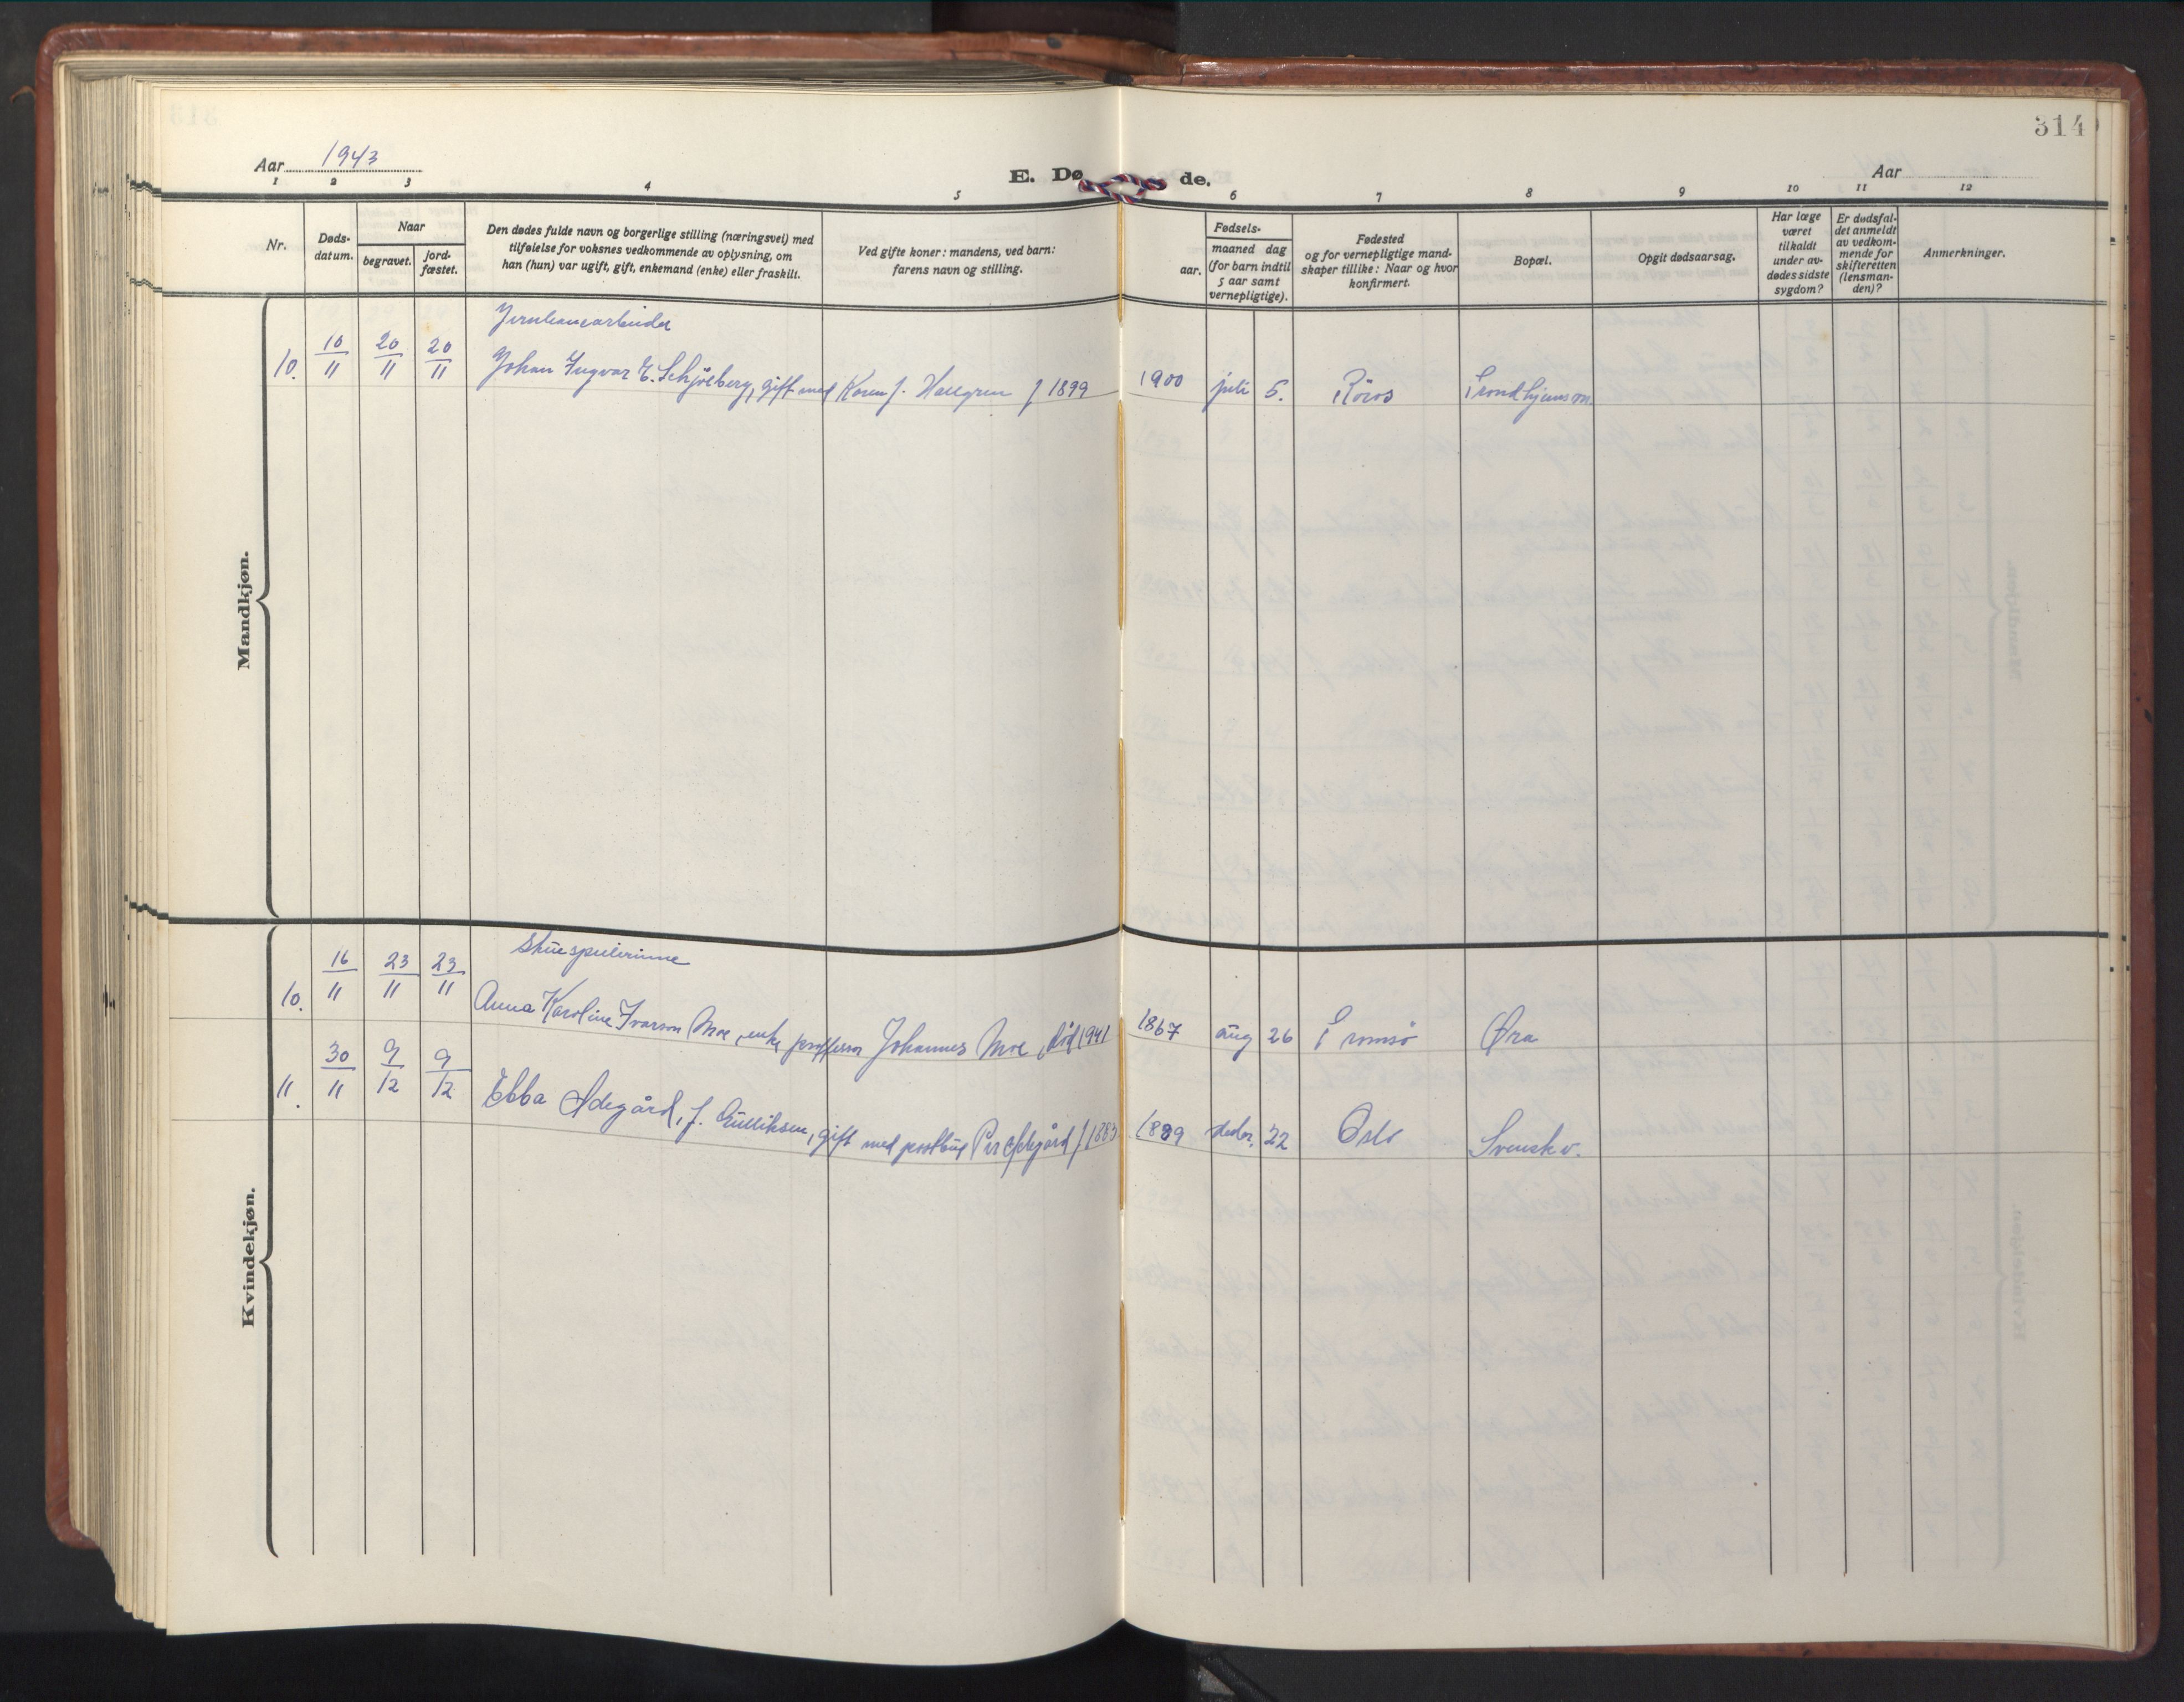 314
Aar 1943
E. Dø de.
Aar
1 2 3 4 5 6 7 8 9 10 11 12
Nr.
Døds-
datum.
Naar
begravet.
jord-
fæstet.
Den dødes fulde navn og borgerlige stilling (næringsvei) med
tilføielse for voksnes vedkommende av oplysning, om
han (hun) var ugift, gift, enkemand (enke) eller fraskilt.
Ved gifte koner: mandens, ved barn:
farens navn og stilling.
Fødsels-
aar.
maaned dag
(for barn indtil
5 aar samt
vernepligtige).
Fødested
og for vernepligtige mand-
skaper tillike: Naar og hvor
konfirmert.
Bopæl.
Opgit dødsaarsag.
Har læge
været
tilkaldt
under av-
dødes sidste
sygdom?
Er dødsfal-
det anmeldt
av vedkom-
mende for
skifteretten
(lensman-
den)?
Anmerkninger.
Mandkjøn.
Jernbanearbeider
10. 10/11 20/11 20/11 Johan Ingvar E. Schjölberg, gift med Karen f. Hallgren f 1899 1900 juli 5. Röros Trondhjemsv.
Kvindekjøn.
Skuespillerinne
10. 16/11 23/11 23/11 Anna Karoline Ivarson Moe, enke proffessor Johannes Moe, död 1941 1867 aug 26 Tromsö Øra
11. 30/11 9/12 9/12 Ebba Ödegård, f. Gulliksen, gift med postbud Per Ödegård f 1883 1889 decbr. 22 Oslo Svenskv.